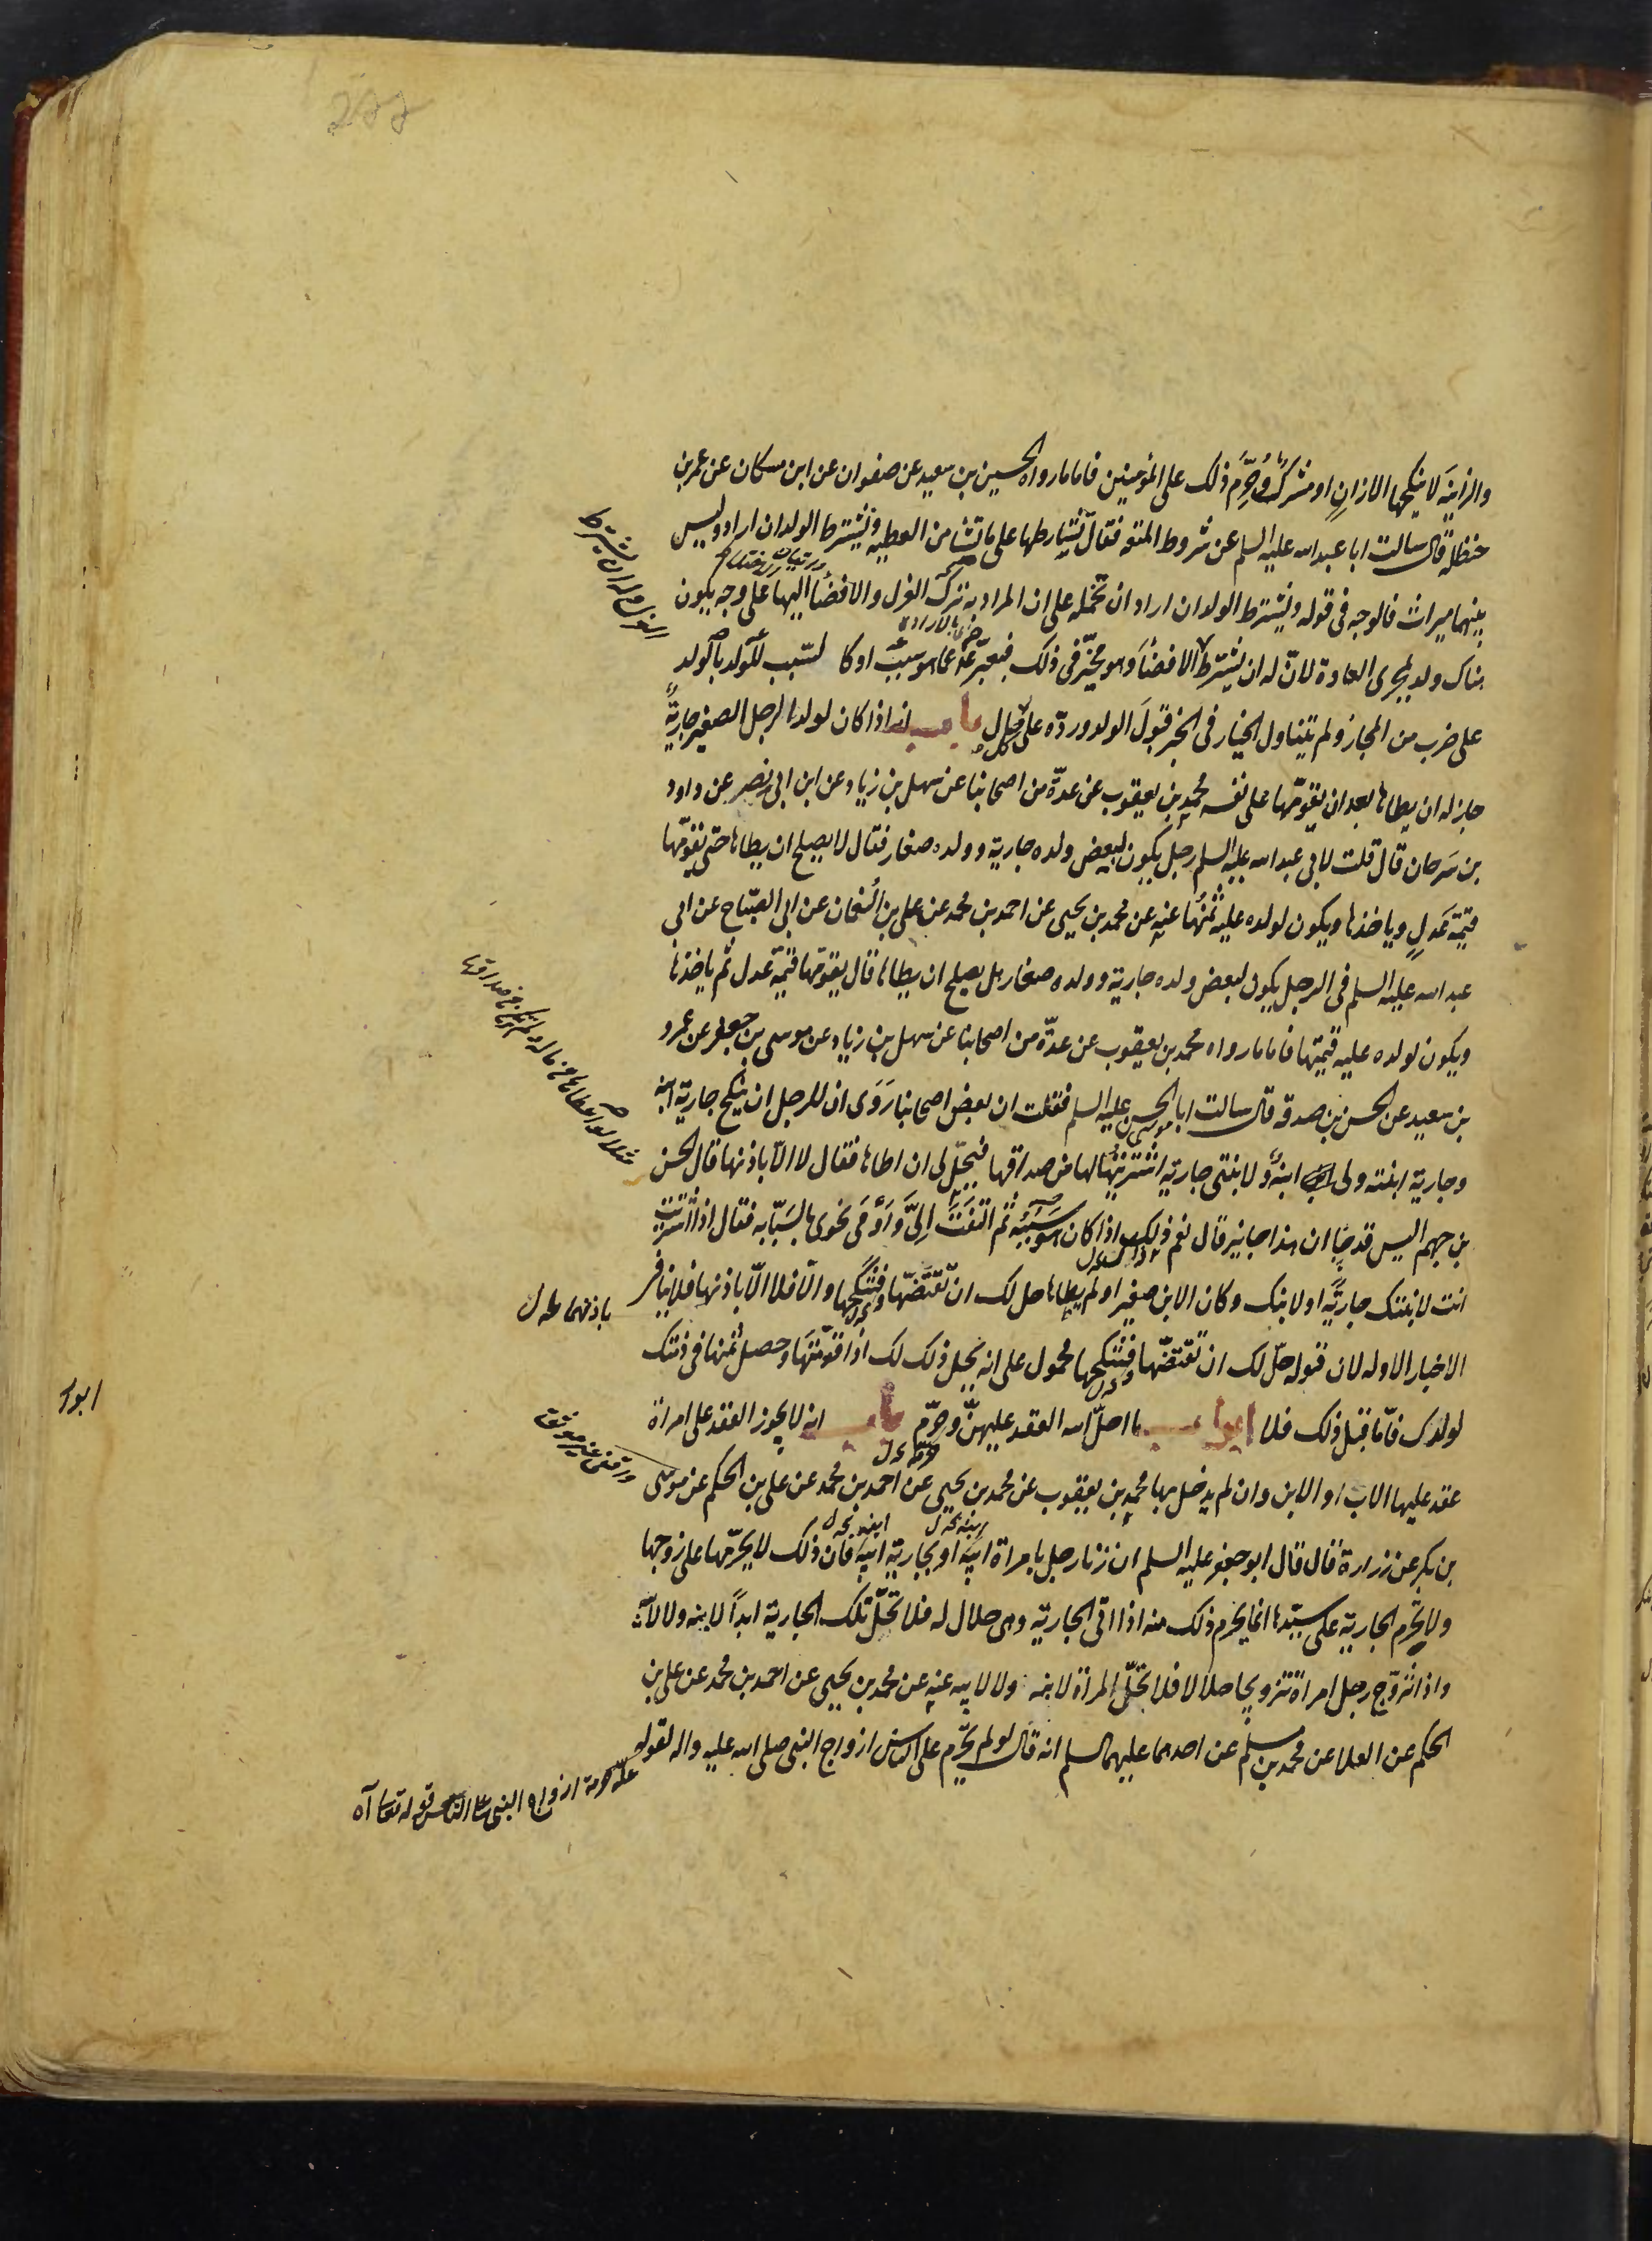 والزانية لا ينكحها الا زانٍ او مشركٌ وحُرِّم ذلك على المؤمنين فاما ما رواه الحسين بن سعيد عن صفوان عن ابن مسكان عن عمر بن
حنظلة قال سالت ابا عبد الله عليه السلم عن شروط المتعه فقال تشارطها على ما تشا من العطيه ونشترط الولد ان اراد وليس
بينهما ميراث فالوجه فى قوله ونشترط الولد ان اراد ان نحمله على ان المراد به ترك العزل والافضا اليها على وجه يكون
هناك ولد لمجرى العادة لانّ له ان يشترط الافضاَ وهو مخيّر فى ذلك فعبّر عمّا هو سببٌ او كا لسّبب للولد بالولد
على ضرب من المجاز ولم يتناول الخيار فى الخبر قبولَ الولد وردّه على حال باب انه اذا كان لولد الرجل الصغير جاريةٌ
جاز له ان يطاها بعد ان يقوّمها على نفسه محمد بن يعقوب عن عدّة من اصحابنا عن سهل بن زياد عن ابن ابى نصر عن داود
بن سَرحان قال قلت لابى عبد الله عليه السلم رجل يكون لبعض ولده جارية وولده صغار فقال لا يصلح ان يطاها حتى يقوّمها
قيمة عَدلٍ وياخذها ويكون لولده عليه ثمنُها عنه عن محمد بن يحيى عن احمد بن محمد عن على بن النُعمان عن ابى الصّباح عن ابى
عبد الله عليه السلم فى الرجل يكون لبعض ولده جارية وولده صغار هل يصلح ان يطاها قال يقوّمها قيمة عدل ثم ياخذها
ويكون لولده عليه قيمتها فاما ما رواه محمد بن يعقوب عن عدّة من اصحابنا عن سهل بن زياد عن موسى بن جعفر عن عمرو
بن سعيد عن الحسن بن صدقه قال سالت ابا الحسن عليه السلم فقلت ان بعض اصحابنا رَوَى ان للرجل ان ينكح جارية ابنه
وجارية ابنته ولى ابنةٌ ولابنتى جارية اشتريتُها لها من صداقها فيحلّ لى ان اطاها فقال لا الاّ باذنها قال الحسن
بن جهم اليس قد جاَ ان هذا جايز قال نعم ذلك اذا كان هو سببُه ثم التفتَ اِلىَّ وَاَوْمَى نحوى بالسّبّابه فقال اذا اشتريت
انت لابنتك جاريةً او لابنك وكان الابن صغيرا ولم يطاها حل لك ان تقتضّها فتنكحها والا فلا الاّ باذنها فلا ينافى
الاخبار الاوله لان قوله حلّ لك ان تقتضّها فتنكحها محمول على انه يحل ذلك لك اذا قوّمتَها وحصل ثمنها فى ذمّتك
لولدك فامّا قبل ذلك فلا ابواب ما احلّ الله العقد عليهنّ وحرّم باب انه لا يجوز العقد على امراة
عقد عليها الاب او الابن وان لم يدخل بها محمد بن يعقوب عن محمد بن يحيى عن احمد بن محمد عن على بن الحكم عن موسى
بن بكر عن زرارة قال قال ابو جعفر عليه السلم ان زنا رجل بامراة ابيه او بجارية ابيه فان ذلك لا يحرّمها على زوجها
ولا تحرّم الجارية على سيّدها انما يحرم ذلك منه اذا اتى الجارية وهى حلال له فلا تحلّ تلك الجارية ابداً لابنه ولا لابيه
واذا تزوّج رجل امراة تزويجا حلالا فلا تحلّ المراة لابنه ولا لابيه عنه عن محمد بن يحيى عن احمد بن محمد عن على بن
الحكم عن العلا عن محمد بن مسلم عن احدهما عليهما السلم انه قال لو لم يحرّم على الناس ازواج النبى صلى الله عليه واله لقوله
باذنهما
علة حرمة ازواج النبى على الناس قوله تعا آه